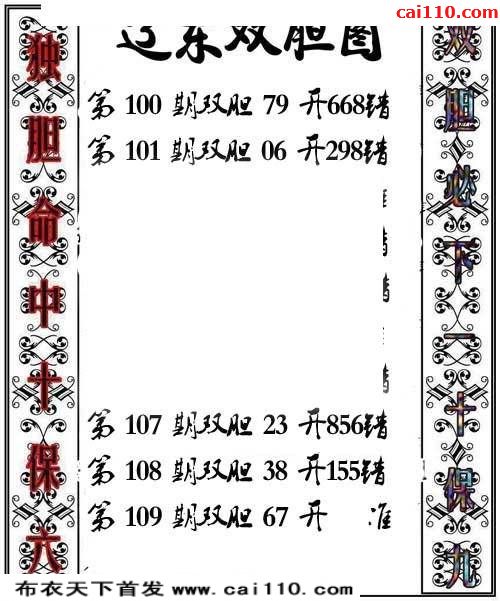 cai110.com
辽东双胆图
独胆命中十保六
第 100 期双胆 79 开668错
第 101 期双胆 06 开298错
第 107 期双胆 23 开856错
第 108 期双胆 38 开155错
第 109 期双胆 67 开 准
双胆必下一十保九
布衣天下首发 www.cai110.com